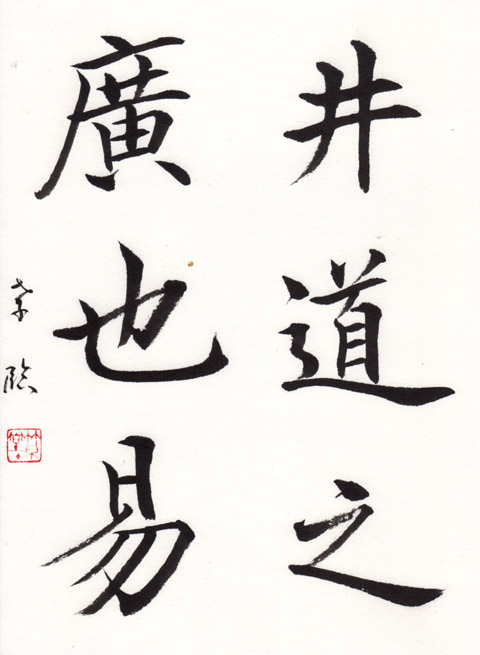 井道之
廣也易
臨